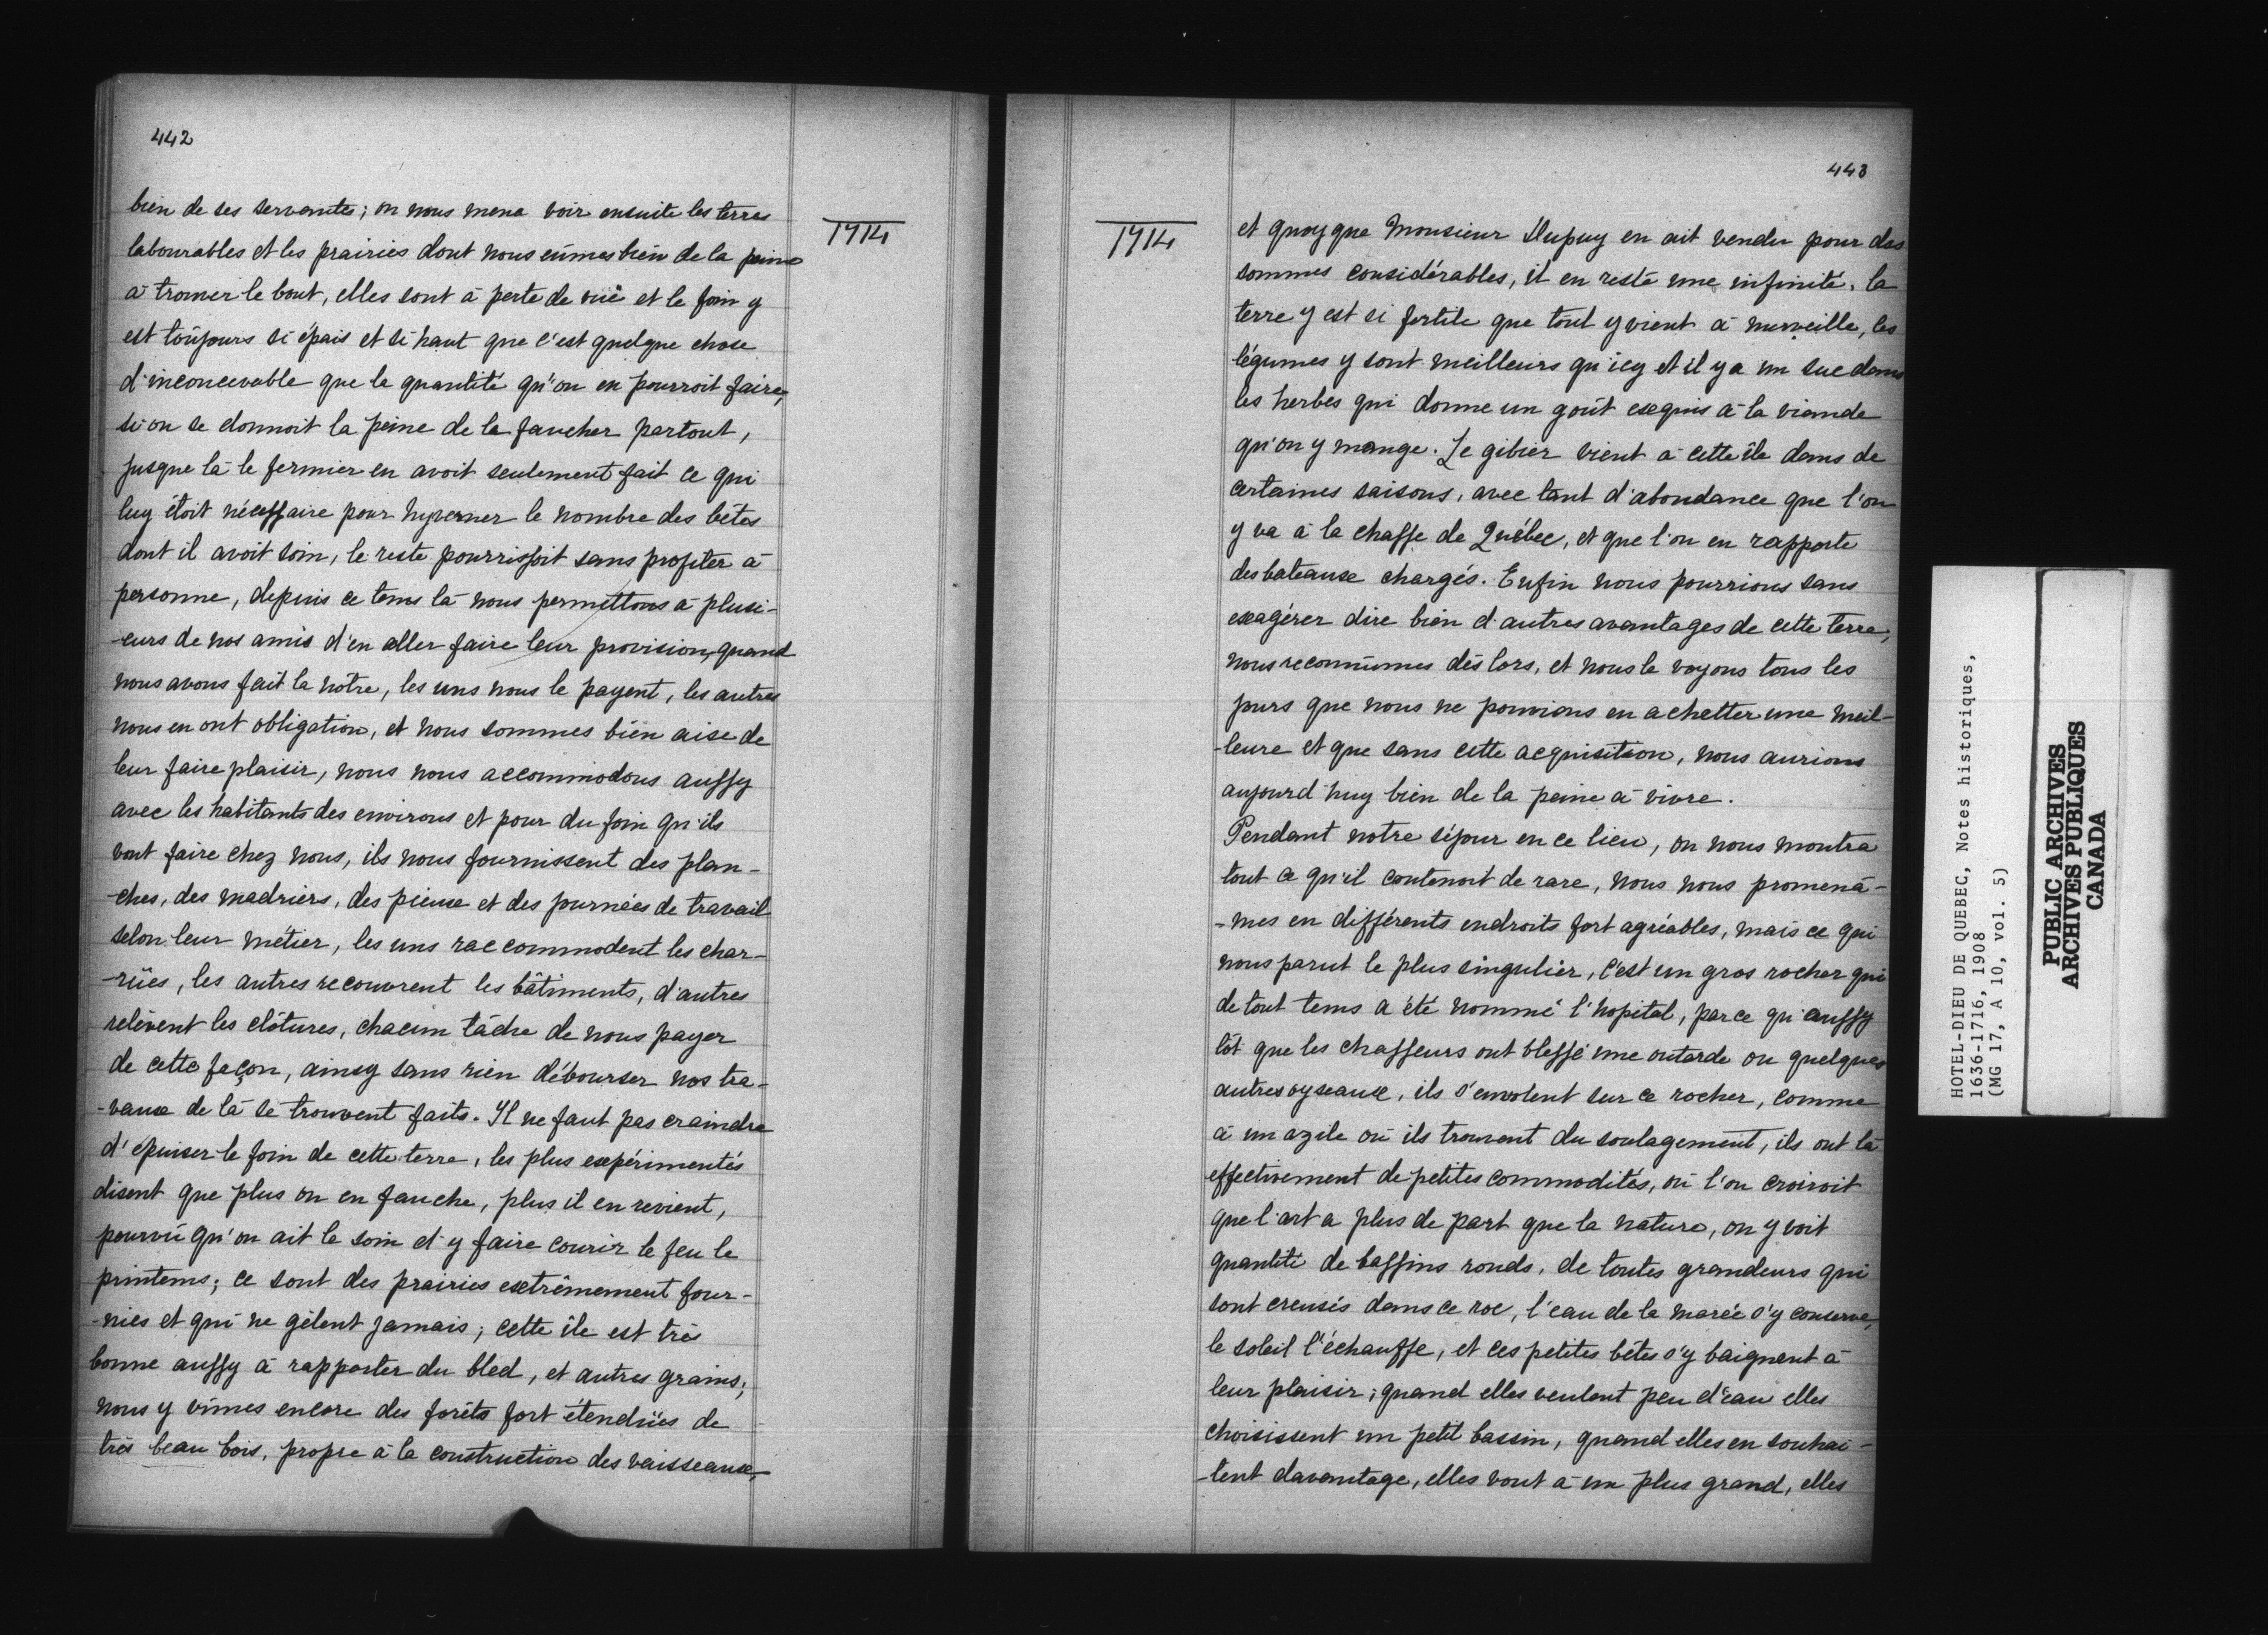 442
bien de ses servantes; on nous mena voir ensuite les terres
labourables et les prairies dont nous eûmes bien de la peine
à trouver le bout, elles sont à perte de vuë et le foin y
est toûjours si épais et si haut que c'est quelque chose
d'inconcevable que la quantité qu'on en pourroit faire,
si on se donnoit la peine de le faucher partout,
jusque là le fermier en avoit seulement fait ce qui
luy étoit nécessaire pour hyverner le nombre des bêtes
dont il avoit soin, le reste pourrissoit sans profiter à
personne, depuis ce tems là nous permettons à plusi-
-eurs de nos amis d'en aller faire leur provision, quand
nous avons fait la notre, les uns nous le payent, les autres
nous en ont obligation, et nous sommes bien aise de
leur faire plaisir, nous nous accommodons aussy
avec les habitants des environs et pour du foin qu'ils
vont faire chez nous, ils nous fournissent des plan-
-ches, des madriers, des pieux et des journées de travail
selon leur métier, les uns raccommodent les char-
-rües, les autres recouvrent les bâtiments, d'autres
relèvent les clôtures, chacun tâche de nous payer
de cette façon, ainsy sans rien débourser nos tra-
-vaux de là se trouvent faits. Il ne faut pas craindre
d'épuiser le foin de cette terre, les plus expérimentés
disent que plus on en fauche, plus il en revient,
pourvû qu'on ait le soin d'y faire courir le feu le
printems; ce sont des prairies extrêmement four-
-nies et qui ne gèlent jamais; cette île est très
bonne aussy à rapporter du bled, et autres grains;
nous y vîmes encore des forêts fort étendües de
très beau bois, propre à la construction des vaisseaux,
1714
1714
443
et quoyque Monsieur Dupuy en ait vendu pour des
sommes considérables, il en reste une infinité. la
terre y est si fertile que tout y vient à merveille, les
légumes y sont meilleurs qu'icy et il y a un suc dans
les herbes qui donne un goût exquis à la viande
qu'on y mange. Le gibier vient à cette île dans de
certaines saisons, avec tant d'abondance que l'on
y va à la chasse de Québec, et que l'on en rapporte
des bateaux chargés. Enfin nous pourrions sans
exagérer dire bien d'autres avantages de cette terre,
nous reconnûmes dès lors, et nous le voyons tous les
jours que nous ne pouvions en achetter une meil-
-leure et que sans cette acquisition, nous aurions
aujourd'huy bien de la peine à vivre.
Pendant notre séjour en ce lieu, on nous montra
tout ce qu'il contenoit de rare, nous nous promenâ-
-mes en différents endroits fort agréables, mais ce qui
nous parut le plus singulier, c'est un gros rocher qui
de tout tems a été nommé l'hopital, parce qu'aussy
tôt que les chasseurs ont blessé une outarde ou quelques
autres oyseaux, ils s'envolent sur ce rocher, comme
à un azile où ils trouvent du soulagement, ils ont là
effectivement de petites commodités, où l'on croiroit
que l'art a plus de part que la nature, on y voit
quantité de bassins ronds, de toutes grandeurs qui
sont creusés dans ce roc, l'eau de la marée s'y conserve,
le soleil l'échauffe, et ces petites bêtes s'y baignent à
leur plaisir; quand elles veulent peu d'eau elles
choisissent un petit bassin, quand elles en souhai-
-tent davantage, elles vont à un plus grand, elles
HOTEL-DIEU DE QUEBEC, Notes historiques,
1636-1716, 1908
(MG 17, A 10, vol. 5)
PUBLIC ARCHIVES
ARCHIVES PUBLIQUES
CANADA